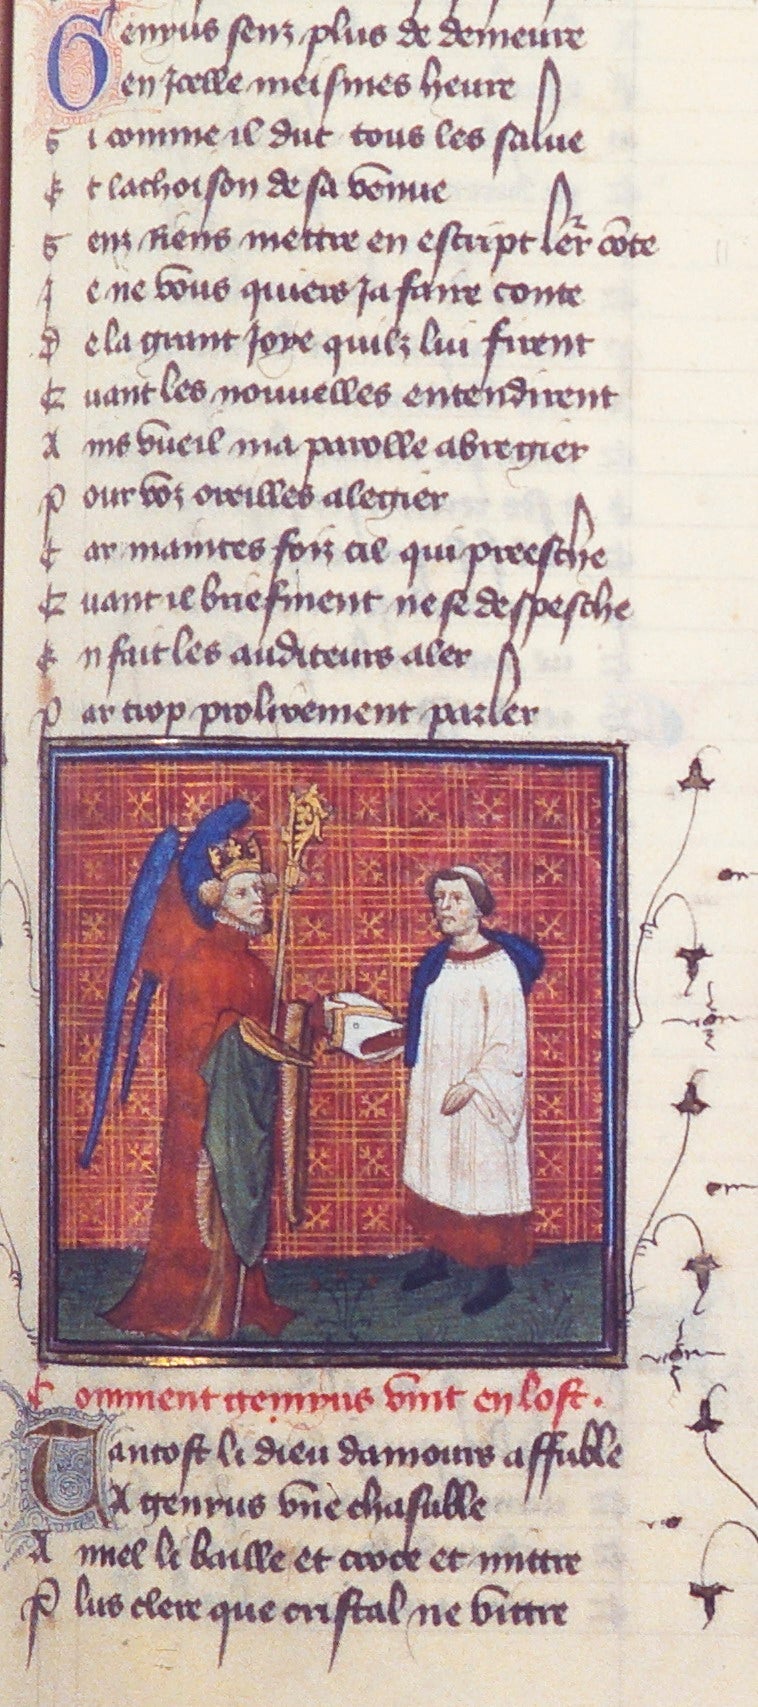 Genyus senz plus de demeure
en Icelle meismes heure
S i comme il dut tous les salue
E t lachoison de sa venue
S enz Riens mettre en escript leur cote
I e ne vous quiers Ja faire conte
D e la grant Joye quilz lui firent
Q uant les nouvelles entendirent
A ins vueil ma parolle abregier
P our voz oreilles alegier
C ar maintes foiz cil qui preesche
Q uant il briefment ne se despesche
E n fait les auditeurs aler
P ar trop prolixement parler
C omment genyus vint en lost.
Tantost li dieu damours affuble
A genyus vne chasuble
A nnel li baille et croce et mittre
P lus clere que cristal ne vittre